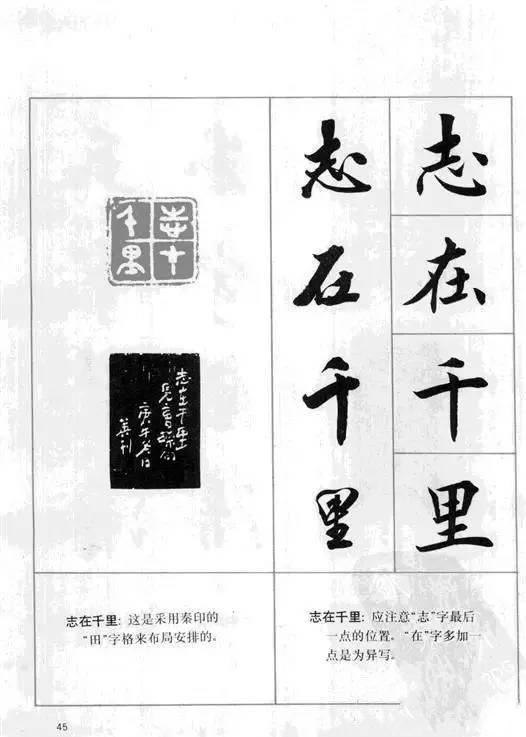 志在千里
志在千里
志在千里
志在千里
志在千里：这是采用秦印的
“田”字格来布局安排的。
志在千里：应注意“志”字最后
一点的位置。“在”字多加一
点是为异写。
45